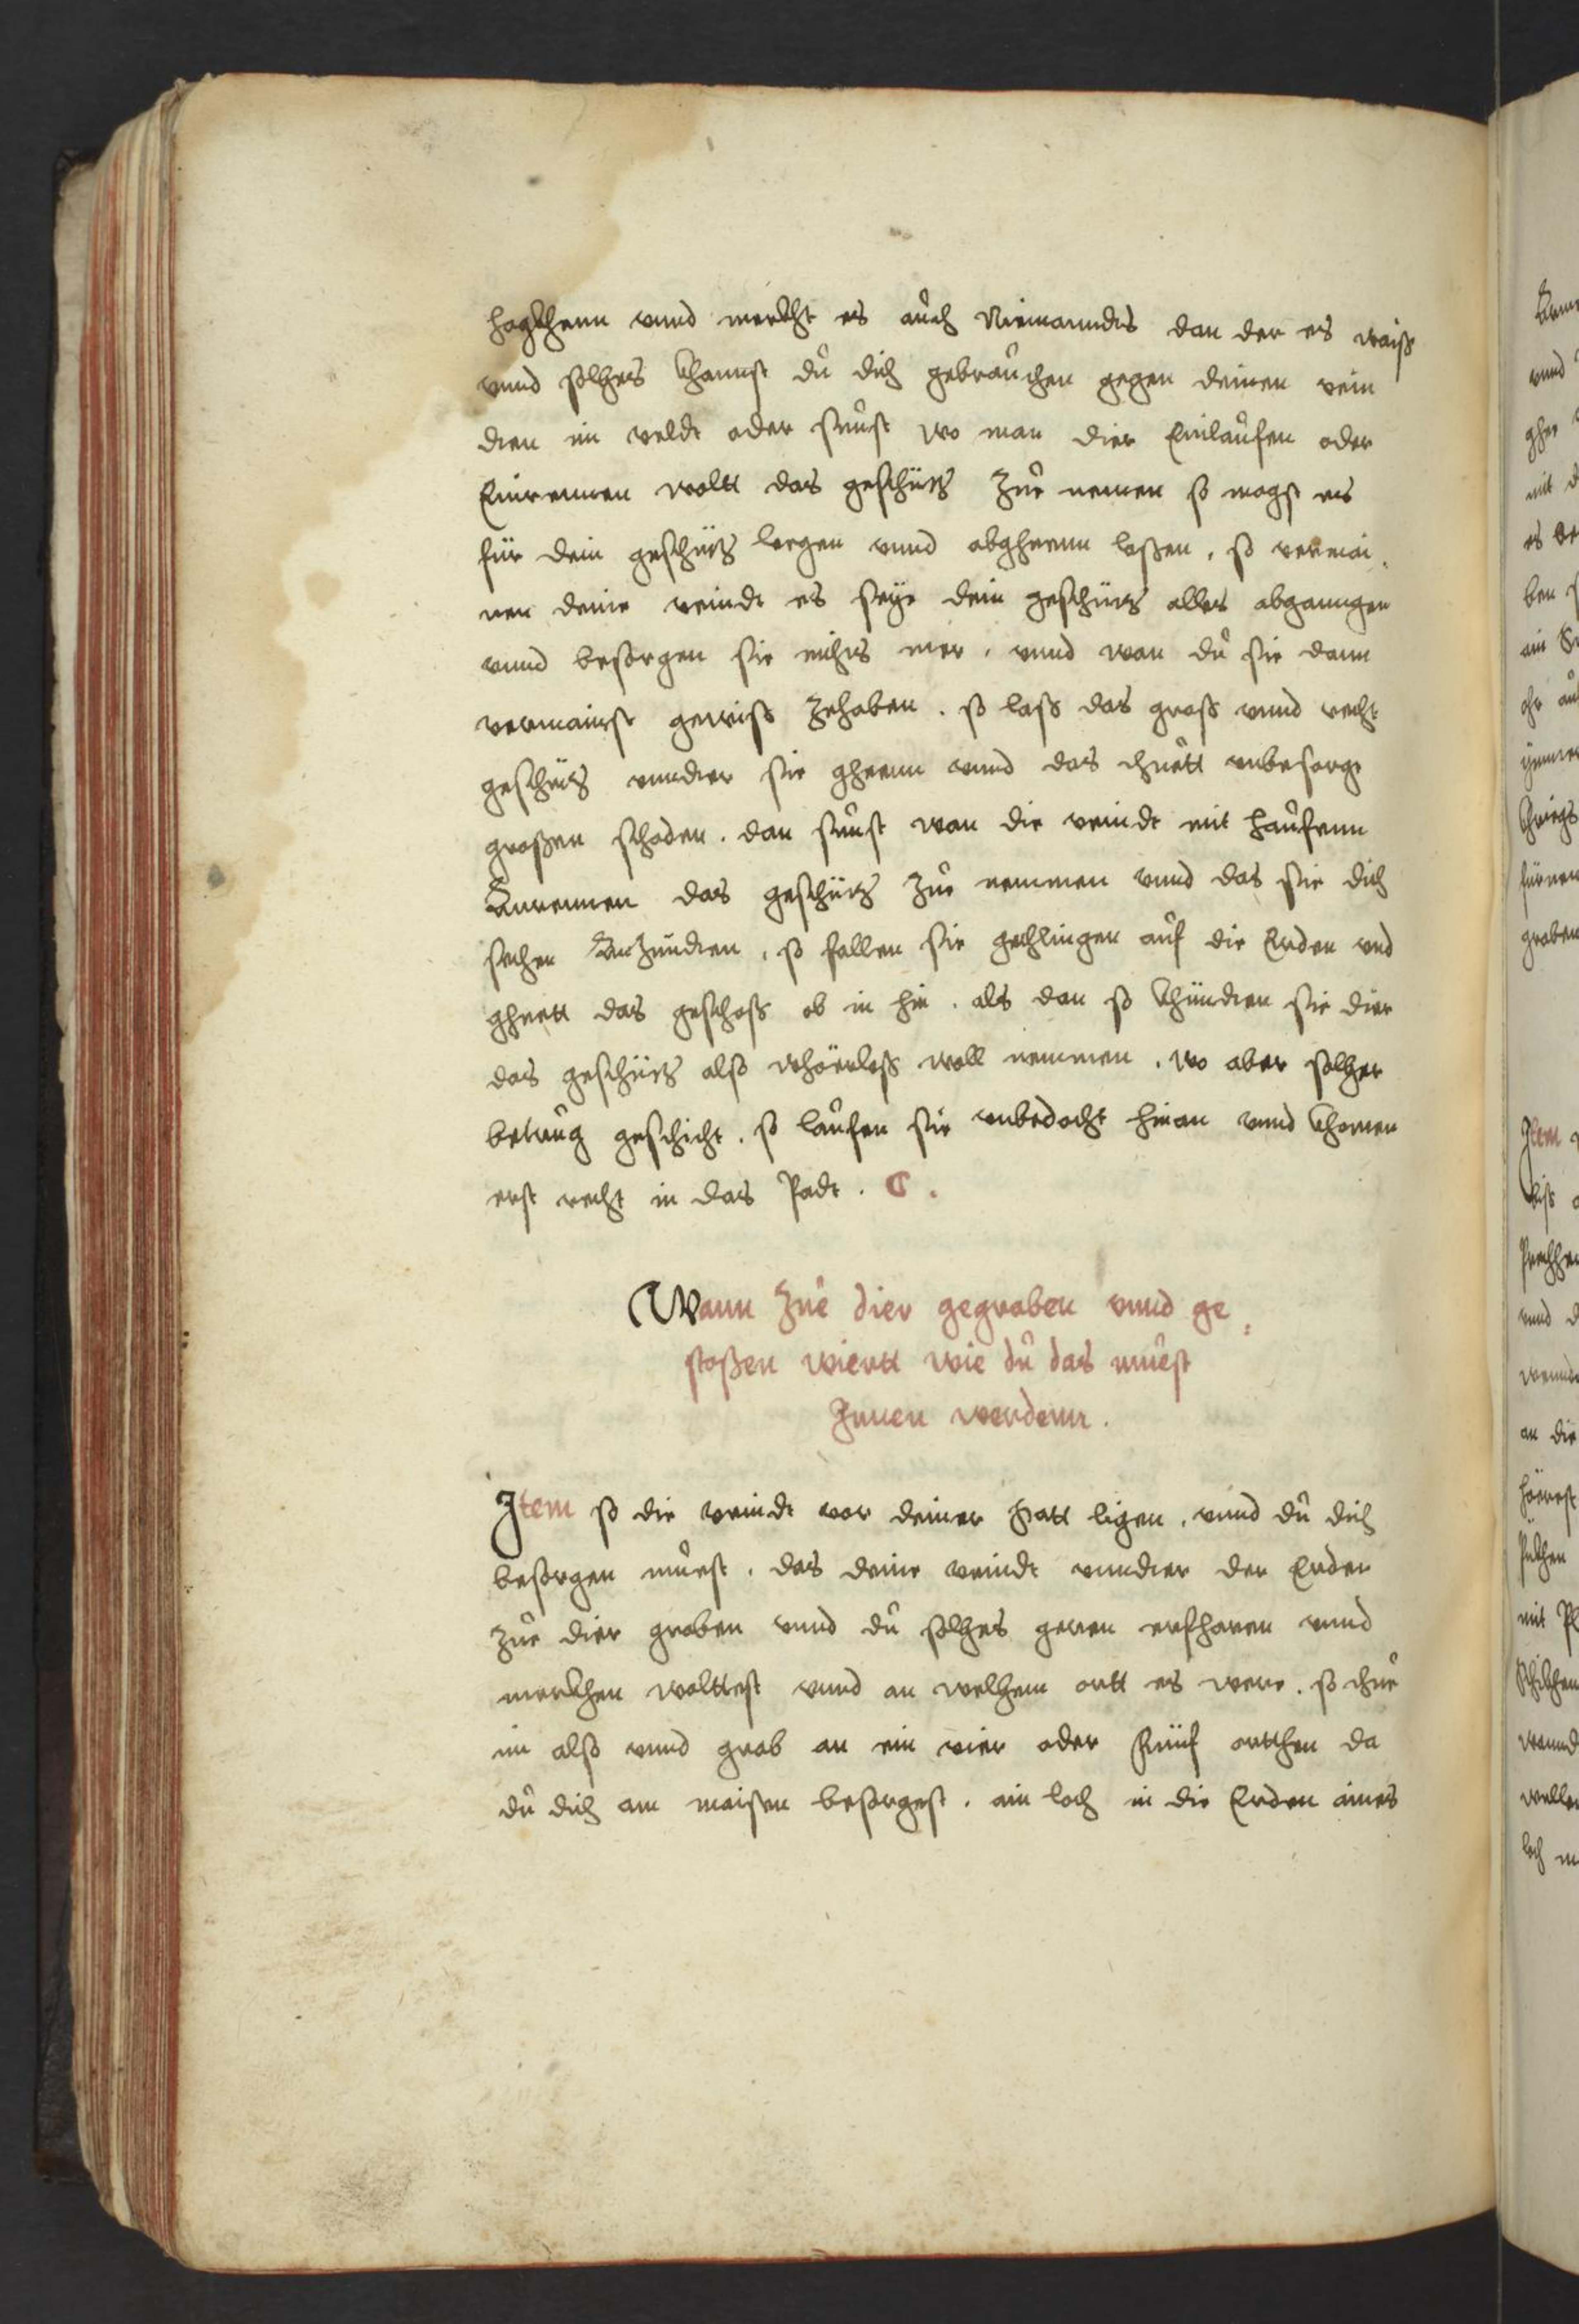 hagkhenn vnnd merckht es auch Niemanndts dan der es waiß
vnnd solhes khannst du dich gebrauchen gegen deinen vein
dten im veldt oder sunst wo man dier Einlaufen oder
Einrennen woltt das geschütz zue nemen so magst es
für dein geschütz legen vnnd abgheenn laßen, so vermai,
nen deine veindt es seye dein geschütz alles abganngen
vnnd besorgen sie nichts mer, vnnd wan du sie dann
vermainst gewiß zehaben. so laß das groß vnnd recht
geschütz vnndter sie gheenn vnnd das thuett vnbesorgt
großen schaden. dan sunst wan die veindt mit haufenn
Anrennen das geschütz zue nemmen vnnd das sie dich
sehen Anzündten, so fallen sie gechlingen auf die Erden vnd
gheett das geschoß ob in hin. als dan so khündten sie dier
das geschütz also whörloß woll nemmen. wo aber solher
betrug geschicht. so laufen sie vnbedacht hinan vnnd khomen
erst recht in das Padt. C.
Wann zue dier gegraben vnnd ge,
stoßen wiertt wie du das muest
Innen werdenn.
Item so die veindt vor deiner statt ligen, vnnd du dich
besorgen muest, das deine veindt vnndter der Erden
zue dier graben vnnd du solhes geren erfharen vnnd
merckhen wolttest vnnd an welhem ortt es were. so thue
im also vnnd grab an ein vier oder Fünf ortthen da
du dich am maisten besorgest. ain loch in die Erden aines